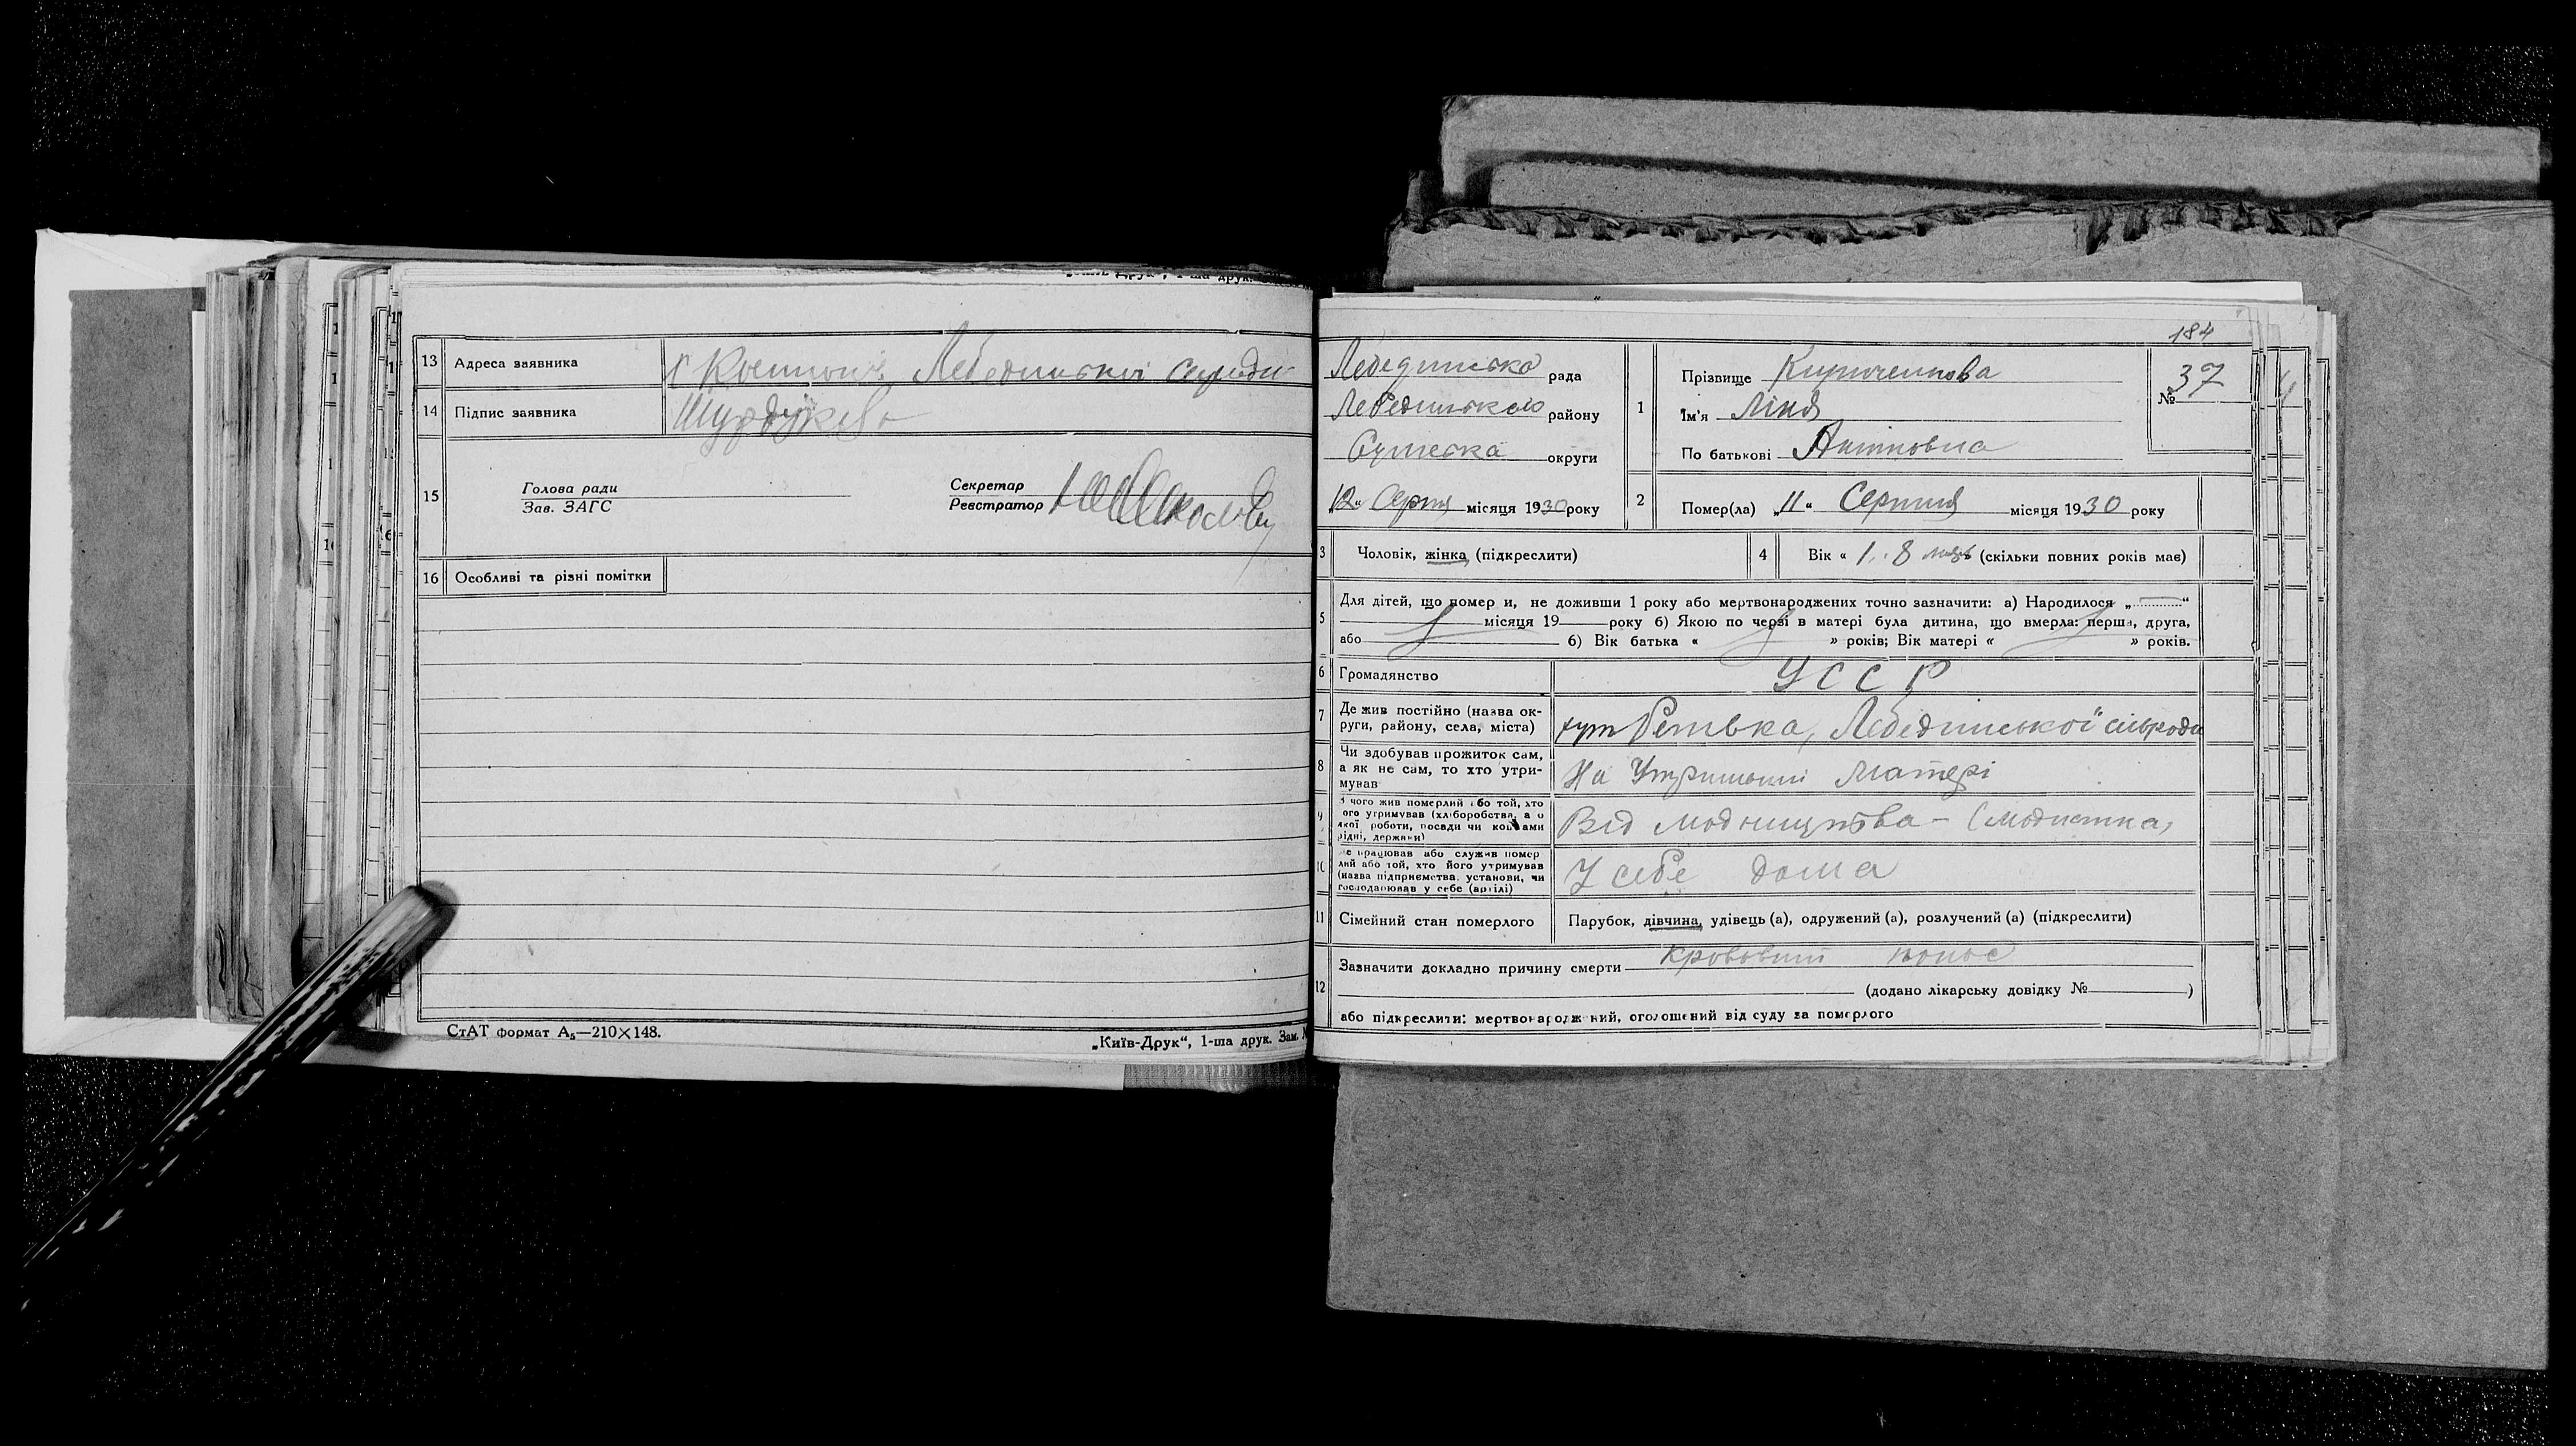 13 Адреса заявника Лебединської
14 Підпис заявника
15 Голова ради
Зав. ЗАГС
Секретар
Реєстратор
16 Особливі та різні помітки
СтАТ формат А₅—210×148.
„Київ-Друк“, 1-ша друк. Зам.
184
Лебединська рада
Лебединського району
Сумська округи
„12“ Серпня місяця 1930 року
1 Прізвище Кириченкова
Ім'я Ліна
По батькові Антоновна
№ 37
2 Помер(ла) „11“ Серпня місяця 1930 року
3 Чоловік, жінка, (підкреслити)
4 Вік « 1. 8 (скільки повних років має)
5 Для дітей, що помер и, не доживши 1 року або мертвонароджених точно зазначити: а) Народилося „ “
місяця 19 року б) Якою по черзі в матері була дитина, що вмерла: перша, друга,
або б) Вік батька « » років; Вік матері « » років.
6 Громадянство УССР
7 Де жив постійно (назва ок-
руги, району, села, міста) хут Лебединської сільради
8 Чи здобував прожиток сам,
а як не сам, то хто утри-
мував На Утриманні Матері
9 З чого жив померлий або той, хто
його утримував (хліборобства, а о
якої роботи, посади чи коштами
рідні, держави) Від (модистка)
10 Де працював або служив помер
лий або той, хто його утримував
(назва підприємства, установи, чи
господарював у себе (артілі) У себе дома
11 Сімейний стан померлого Парубок, дівчина, удівець (а), одружений (а), розлучений (а) (підкреслити)
12 Зазначити докладно причину смерти Крововий понос
(додано лікарську довідку № )
або підкреслити: мертвонароджений, оголошений від суду за померлого